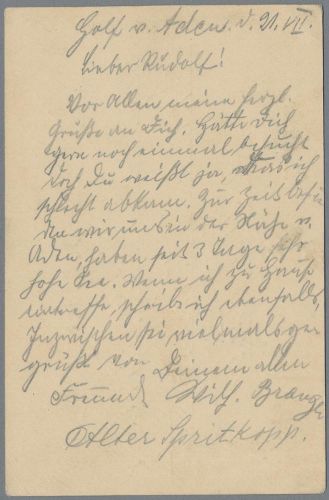 Golf v. Aden. d. 21. VII.
Lieber Rudolf!
Vor Allem meine herzl.
Grüße an Dich. Hätte Dich
gern noch einmal besucht
doch Du weißt ja, daß ich
schlecht abkam. Zur Zeit befin
den wir uns in der Nähe v.
Aden, haben seit 3 Tage sehr
hohe See. Wenn ich zu Haus
eintreffe, schreib ich ebenfalls,
Inzwischen sei vielmals ge
grüßt von Deinem alten
Freund Wilh.
Alter Spritkopp.